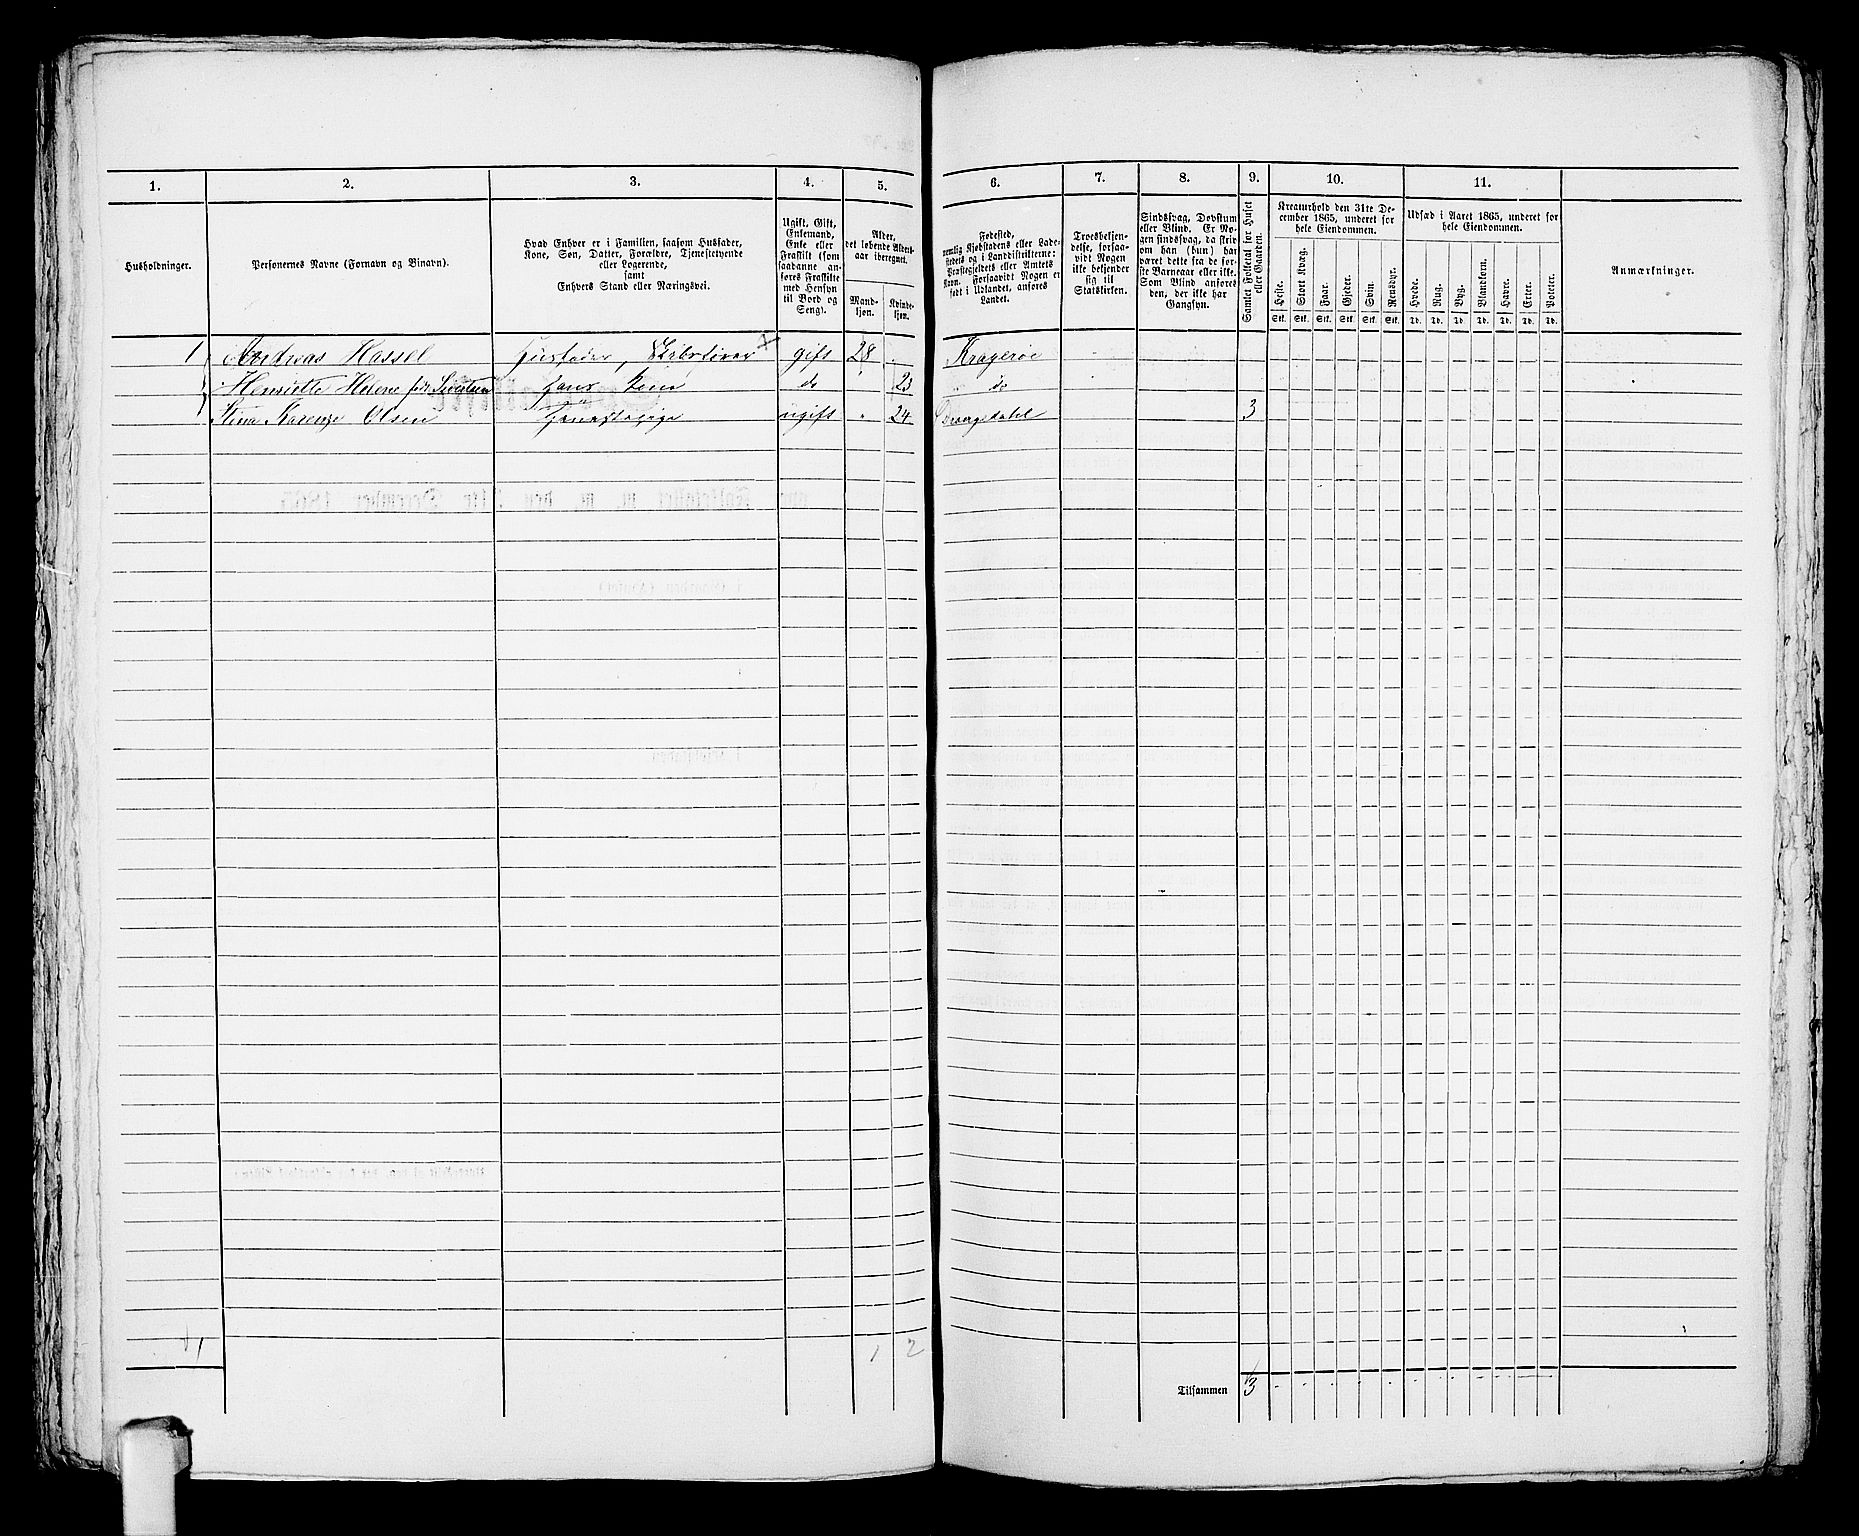 1. 2. 3. 4. 5. 6. 7. 8. 9. 10. 11.
Husholdninger.
Personernes Navne (Fornavn og Binavn).
Hvad Enhver er i Familien, saasom Husfader,
Kone, Søn, Datter, Forældre, Tjenestetyende
eller Logerende,
samt
Enhvers Stand eller Næringsvei.
Ugift, Gift,
Enkemand,
Enke eller
Fraskilt (som
saadanne an-
føres Fraskilte
med Hensyn
til Bord og
Seng).
Alder,
det løbende Alders-
aar iberegnet.
Mand-
kjøn.
Kvinde-
kjøn.
Fødested,
nemlig Kjøbstadens eller Lade-
stedets og i Landdistrikterne:
Præstegjeldets eller Amtets
Navn. Forsaavidt Nogen er
født i Udlandet, anføres
Landet.
Troesbekjen-
delse, forsaa-
vidt Nogen
ikke bekjender
sig til
Statskirken.
Sindssvag, Døvstum
eller Blind. Er No-
gen sindssvag, da skri-
v om han (hun) har
været dette fra de før-
ste Barneaar eller ikke.
Som Blind anføres
den, der ikke har
Gangsyn.
Samlet Folketal for Huset
eller Gaarden.
Kreaturhold den 31te De-
cember 1865, underet for
hele Eiendommen.
Heste.
Stort Kvæg.
Faar.
Gjeder.
Svin.
Rensdyr.
Stk. Stk. Stk. Stk. Stk. Stk.
Udsæd i Aaret 1865, underet for
hele Eiendommen.
Hvede.
Rug.
Byg.
Blandkorn.
Havre.
Erter.
Poteter.
Td. Td. Td. Td. Td. Td. Td.
Anmærkninger.
1 Andreas Hassel Husfader, gift 28 Kragerøe
Henriette Helene født hans Kone do 23 do
Stina Karenze Olsen Tjenestepige ugift " 24 Drangedahl 3
1 1 2
Tilsammen 3